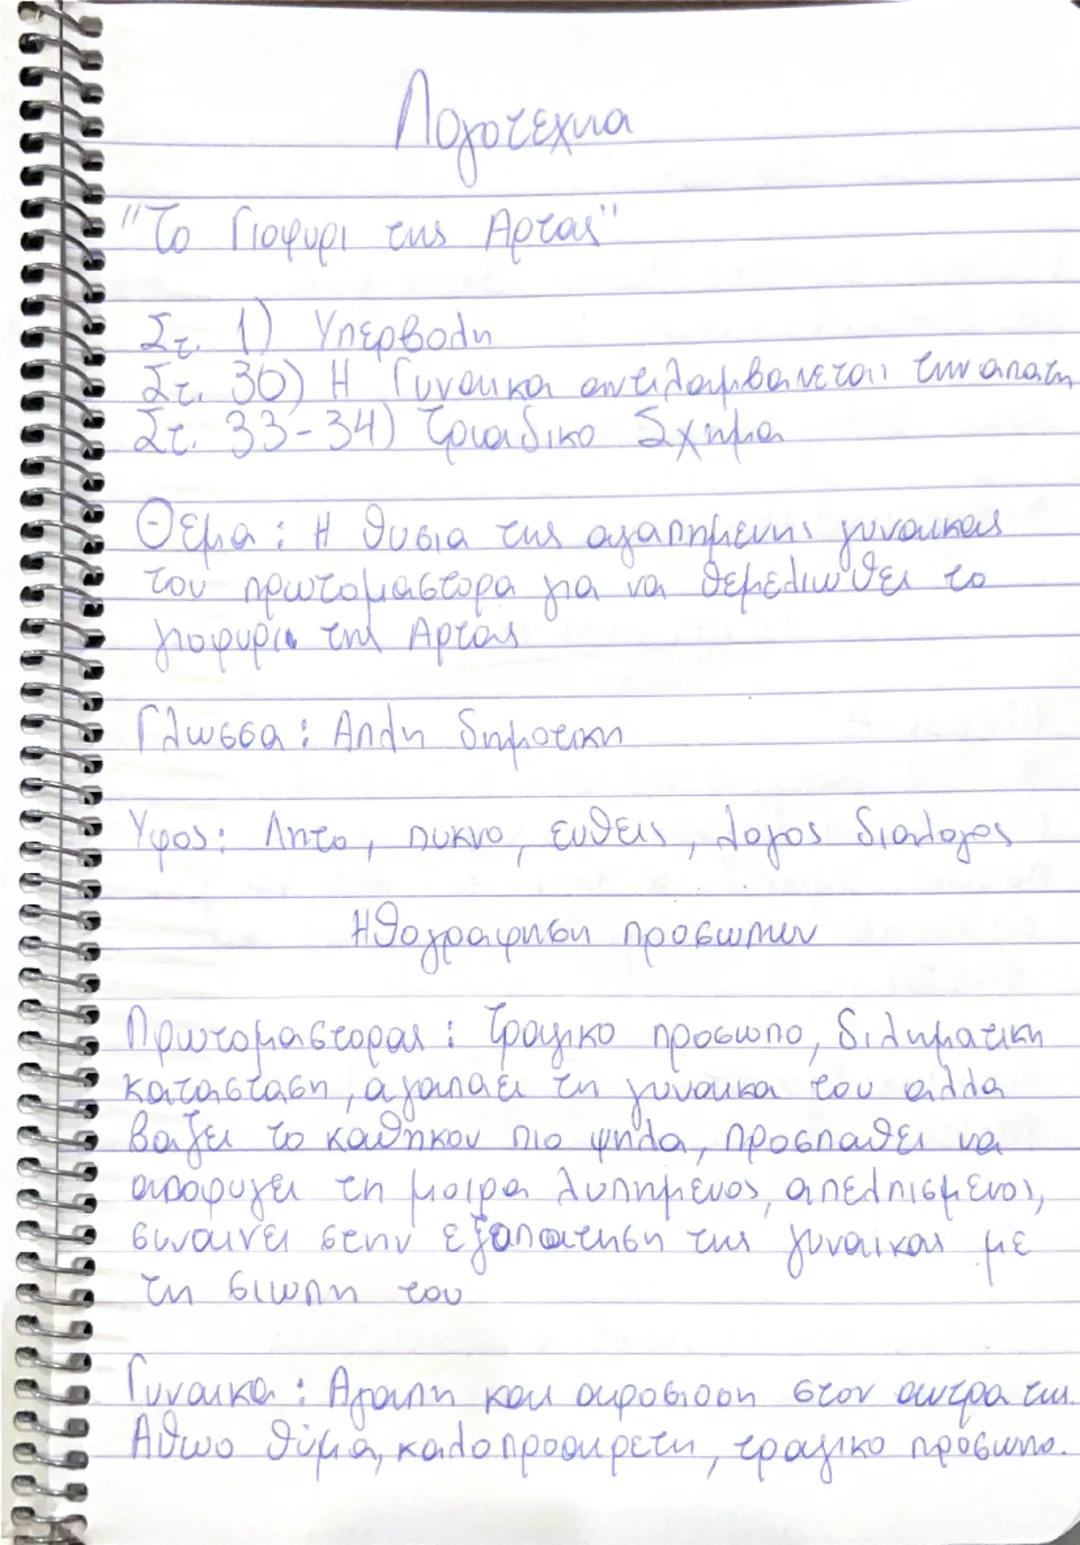 Λογοτεχνια
"Το Γιοφυρι της Αρτας"
Στ. 1) Υπερβολη
Στ. 30) Η Γυναικα αντιλαμβανεται την απατη
Στ. 33-34) Τριαδικο Σχημα
Θεμα : Η θυσια της αγαπημενης γυναικας
του πρωτομαστορα για να θεμελιωθει το
γιοφυρι της Αρτας
Γλωσσα : Απλη δημοτικη
Υφος : Λιτο, πυκνο, ευθεις, λογος διαλογος
Ηθογραφηση προσωπων
Πρωτομαστορας : Τραγικο προσωπο, διλημματικη
κατασταση, αγαπαει τη γυναικα του αλλα
βαζει το καθηκον πιο ψηλα, προσπαθει να
αποφυγει τη μοιρα λυπημενος, απελπισμενος,
συναινει στην εξαπατηση της γυναικας με
τη σιωπη του
Γυναικα : Αγαπη και αφοσιοση στον αντρα της.
Αθωο θύμα, καλοπροαιρετη, τραγικο προσωπο.